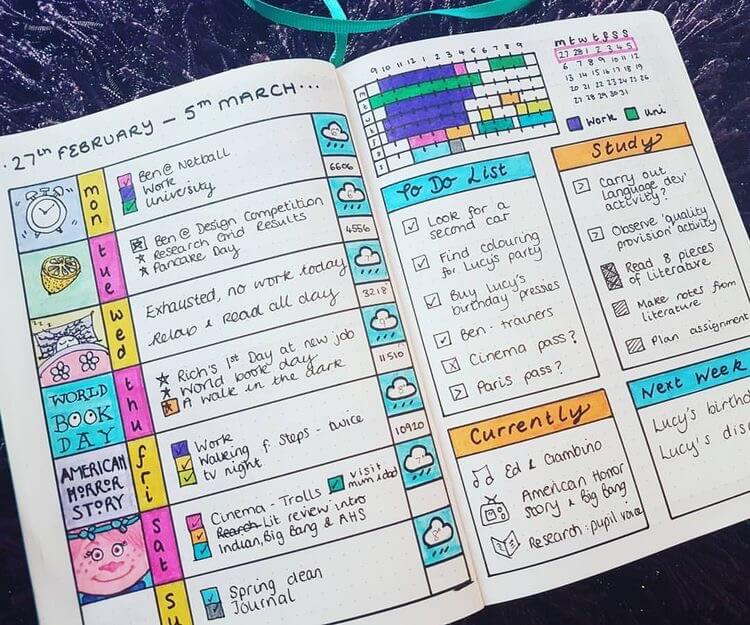 27th FEBRUARY - 5TH MARCH...
mon
Ben @ Netball
Work
University
6606
tue
Ben @ Design Competition
Research Grid Results
Pancake Day
4556
wed
Exhausted, no work today
Relax & Read all day
3218
WORLD
BOOK
DAY
thu
Rich's 1st Day at new job
World book day
A walk in the dark
11510
AMERICAN
HORROR
STORY
fri
Work
Walking f. Steps - twice
tv night
10920
sat
Cinema - Trolls
visit
mum & dad
Lit review intro
Indian, Big Bang & AHS
8
su
Spring clean
Journal
9 10 11 12 1 2 3 4 5 6 7 8 9
m
t
w
t
f
s
s
m t w t f s s
27 28 1 2 3 4 5
6 7 8 9 10 11 12
13 14 15 16 17 18 19
20 21 22 23 24 25 26
27 28 29 30 31
Work
Uni
To Do List
Look for a
second car
Find colouring
for Lucy's party
Buy Lucy's
birthday presses
Ben - trainers
Cinema pass?
Paris pass?
Study
Carry out
language dev'
activity?
Observe 'quality
provision' activity
Read 8 pieces
of literature
Make notes from
literature
Plan assignment
Currently
Ed & Gambino
American Horror
Story & Big Bang
Research: pupil voice
Next Week
Lucy's birthd
Lucy's dis